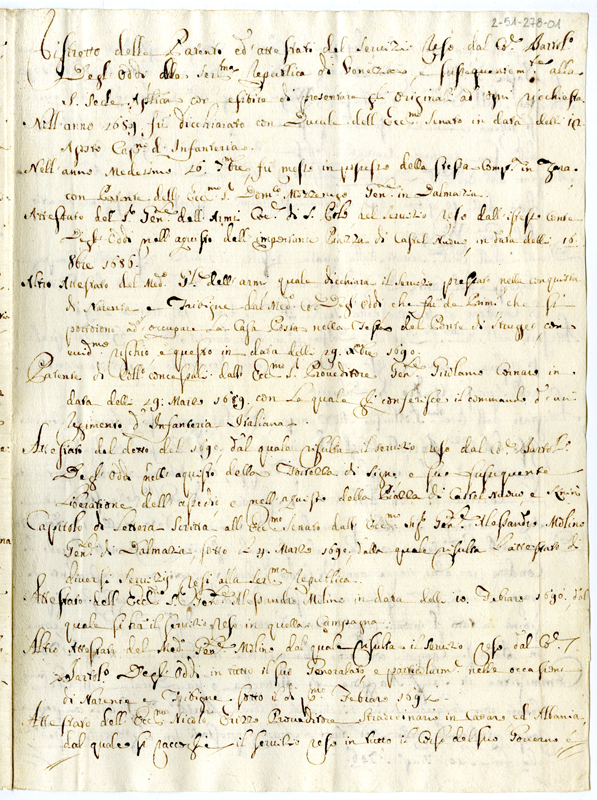 2-51-278-01
Ristretto delle Patente ed' attestati del servizio reso dal Co: Bartol:
Degl' Oddi alla Seren:ma Republica di Venezia, e susseguentem:te alla
S. Sede Aplica con esibito di presentare gl' Originali ad ogni richiesta.
Nell'anno 1689. fu dicchiarato con Ducale dell' Ecc:mo Senato in data delli 12
Agosto Cap:no d' Infanteria.
Nell'anno Medesimo 20: fu messo in possesso della stessa Comp:a in Zara,
con Patente dell' Ecc:mo S: Dom:co Mocenigo Gen: in Dalmazia.
Attestato del S: Gen: dell' Armi Co: di S. Polo nel servizio reso dall' istesso Conte
Degl' Oddi nell' aquisto dell' importante Piazza di Castel Nuovo, in data delli 16
8bre 1686.
Altro Attestato del Med:o G:le dell' armi quale dichiara il servizio prestato nella conquista
di Narenta, e Trebigne dal Med:o Co: Degl' Oddi che fu de Primi che si
portorono ad occupare La Casa Posta nella Testa del Ponte di con
evid:mo rischio e questo in data delli 29. 1690.
Patente di Coll:o concessali dall' Ecc:mo S: Proveditore Gen:le Girolamo Cornaro in
data delli 29. Marzo 1689. con La quale gli conferisce il commando d' un
Regimento d' Infanteria Italiana.
Attestato del detto del 1690, dal quale risulta il servizio reso dal Co: Bartol:
Degl' Oddi nell' aquisto della Torrella di Signe e sue susequente
liberatione dell' assedio e nell' aquisto della Piazza di Castel Nuovo e
Capitolo di lettera scritta all' Ecc:mo Senato dall' Ecc:mo Sig: Gen:le Alessandro Molino
Gen: di Dalmazia sotto li 21. Marzo 1690. dalla quale risulta L' attestato di
diversi Servizi resi alla Ser:ma Republica.
Attestato dell' Ecc:mo S: Gen: Alessandro Molino in data delli 10. Febraro 1690. dal
quale si trà il servizio reso in quella Campagna.
Altro Attestato del Med: Gen:le Molino dal quale risulta il servizio reso dal Co:
Bartol: Degl' Oddi in tutto il suo Generalato e particolarm:te nelle occasioni
di Narente, e Trebigne sotto di p:mo Febraro 1692
Attestato dell' Ecc:mo Nicolò Proveditore Straordinario in Cataro ed' Albania
dal quale si raccoglie il servizio reso in tutto il Corso del suo Governo e